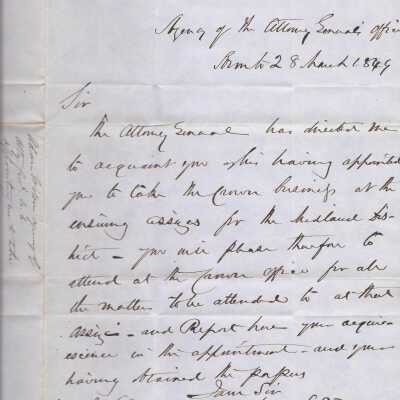 Agency of the Attorney General's Office
Toronto 28 March 1849
Sir
The Attorney General has directed me
to acquaint you of his having appointed
you to take the Crown business at the
ensuing assizes for the Midland Dis-
trict – you will please therefore to
attend at the Crown Office for all
the matter to be attended to at that
assize – and Report here your acquie-
escence in this appointment – and your
having obtained the papers
I am Sir